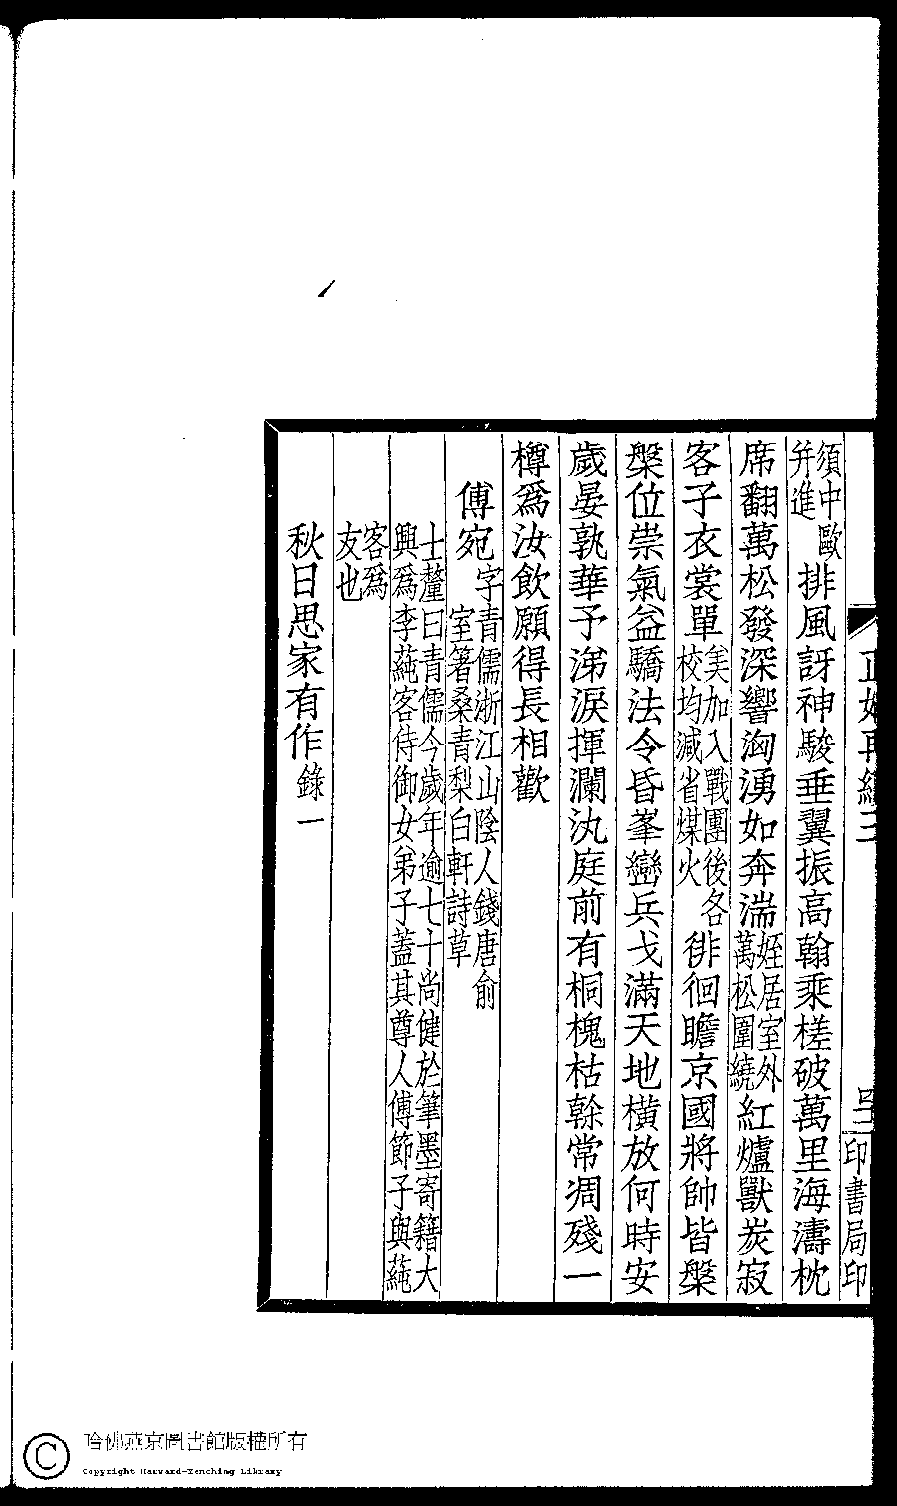 須中歐
并進
排風訝神駿垂翼振高翰乘槎破萬里海濤枕
席翻萬松發深響洶湧如奔湍
姪居室外
萬松圍繞
紅爐獸炭寂
客子衣裳單
美加入戰團後各
校均減省煤火
徘徊瞻京國將帥皆槃
槃位崇氣益驕法令昏峯巒兵戈滿天地橫放何時安
歲晏孰華予涕淚揮瀾汍庭前有桐槐枯榦常凋殘一
樽爲汝飲願得長相歡
傅宛
字青儒浙江山陰人錢唐俞
室箸桑青梨白軒詩草
士釐曰青儒今歲年逾七十尚健於筆墨寄籍大
興爲李蒓客侍御女弟子蓋其尊人傅節子與蒓
客爲
友也
秋日思家有作
錄一
正始再續三
印書局印
哈佛燕京圖書館版權所有
Copyright Harvard-Yenching Library